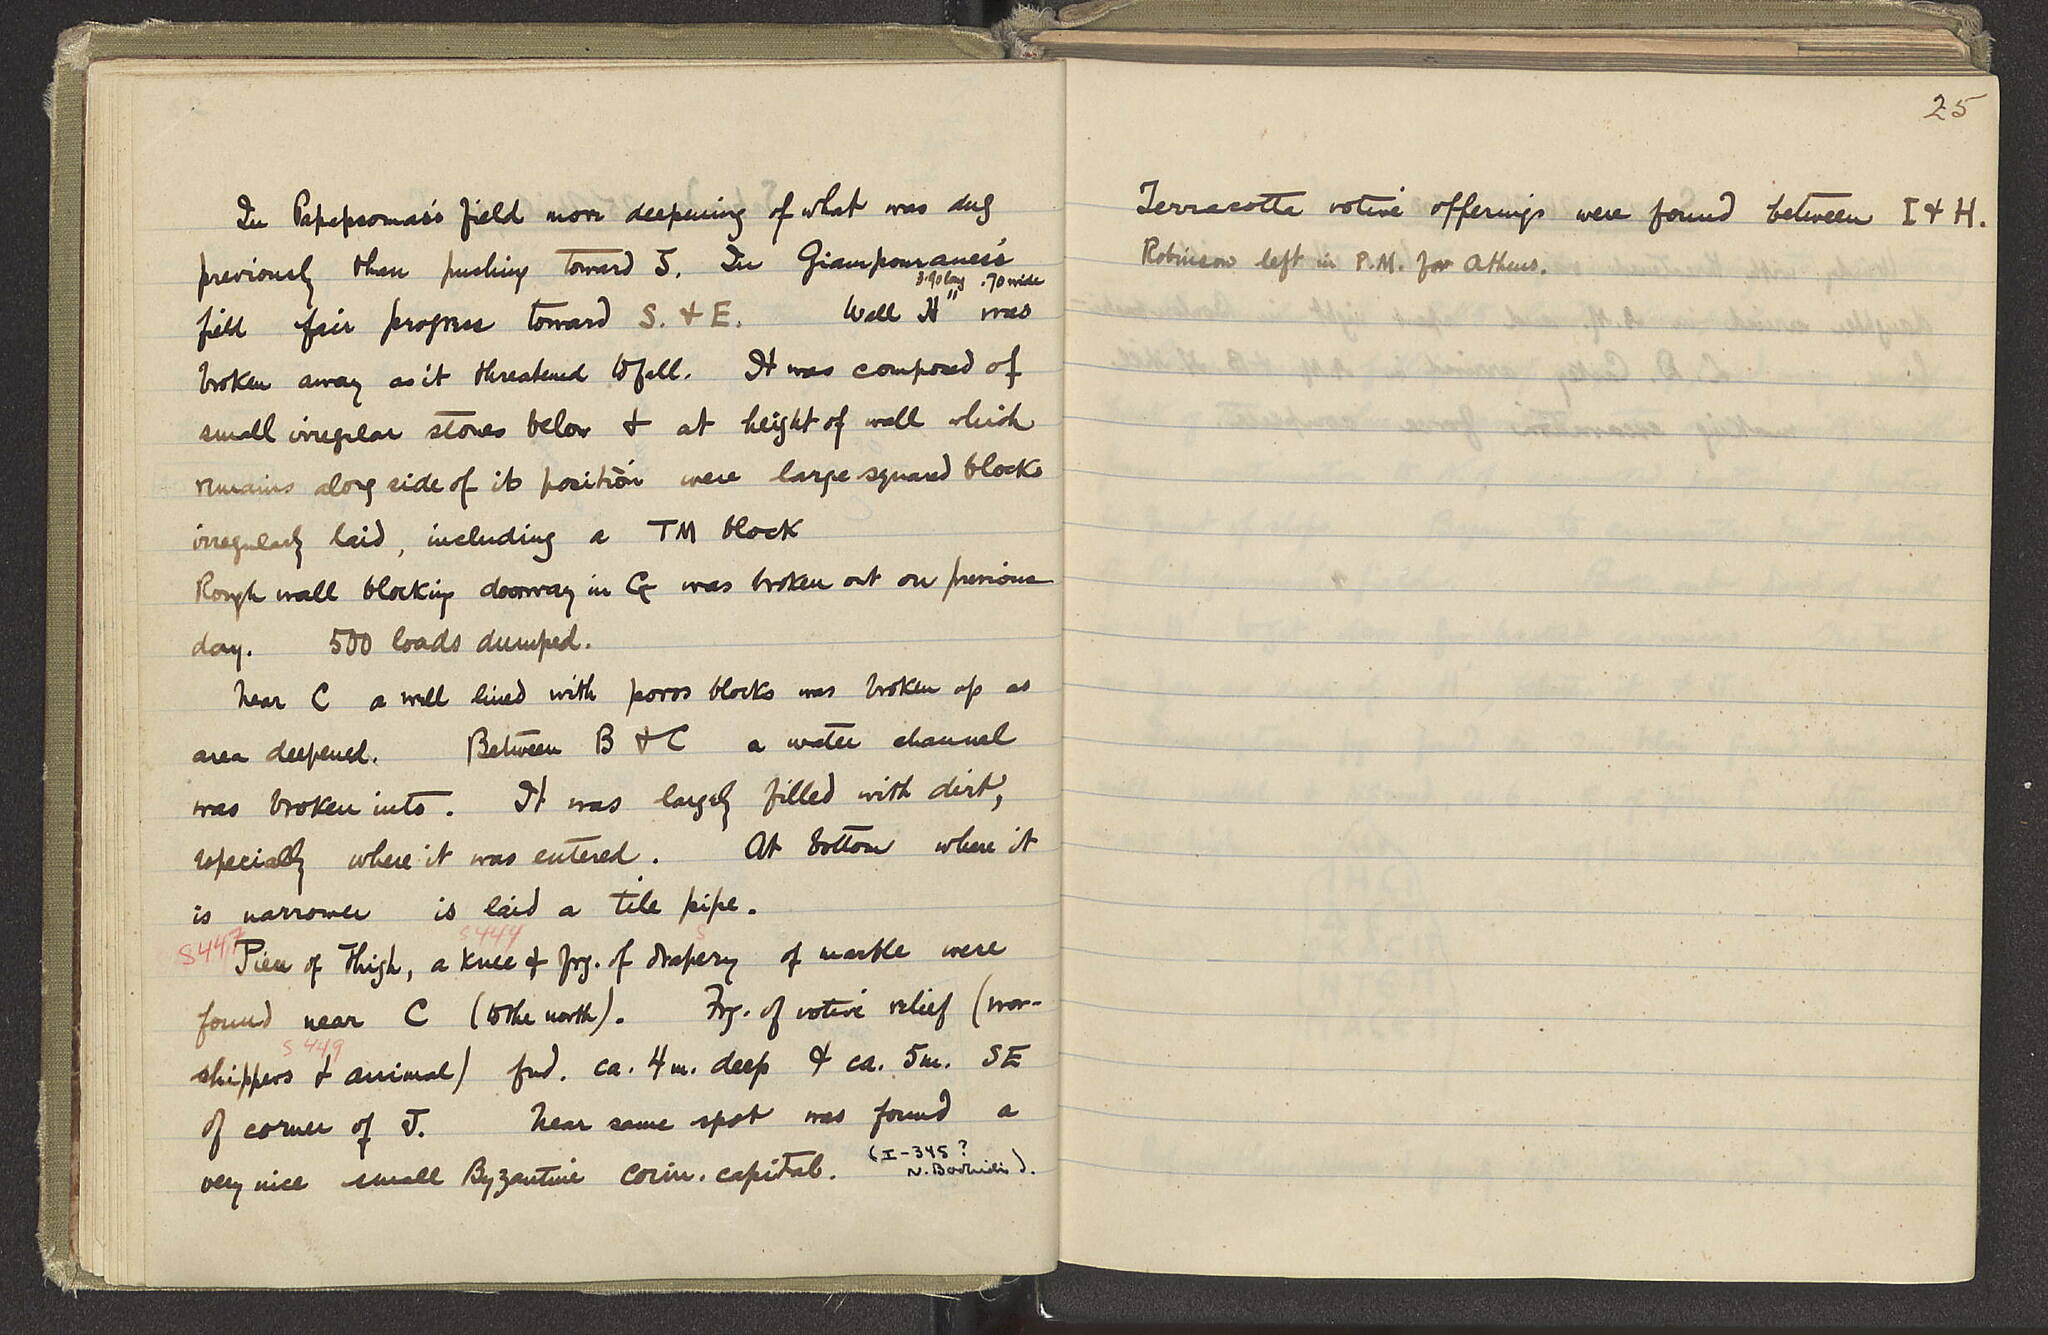 In Papapsomas's field more deepening of what was dug
previously than pushing toward J. In Giampouranes's
3.90 long .70 wide
field fair progress toward S. & E. Wall H" was
broken away as it threatened to fall. It was composed of
small irregular stones below & at height of wall which
remains along side of its position were large squared blocks
irregularly laid, including a TM block
Rough wall blocking doorway in G was broken out on previous
day. 500 loads dumped.
Near C a well lined with poros blocks was broken up as
area deepened. Between B & C a water channel
was broken into. It was largely filled with dirt,
especially where it was entered. At bottom where it
is narrower is laid a tile pipe.
S447 S444 S
Piece of Thigh, a knee & frg. of drapery of marble were
found near C (to the north). Frg. of votive relief (wor-
S 449
shippers & animal) fnd. ca. 4 m. deep & ca. 5m. SE
of corner of J. Near same spot was found a
very nice small Byzantine corin. capital. (I-345?
N. Bookidis).
25
Terracotta votive offerings were found between I & H.
Robinson left in P.M. for Athens.